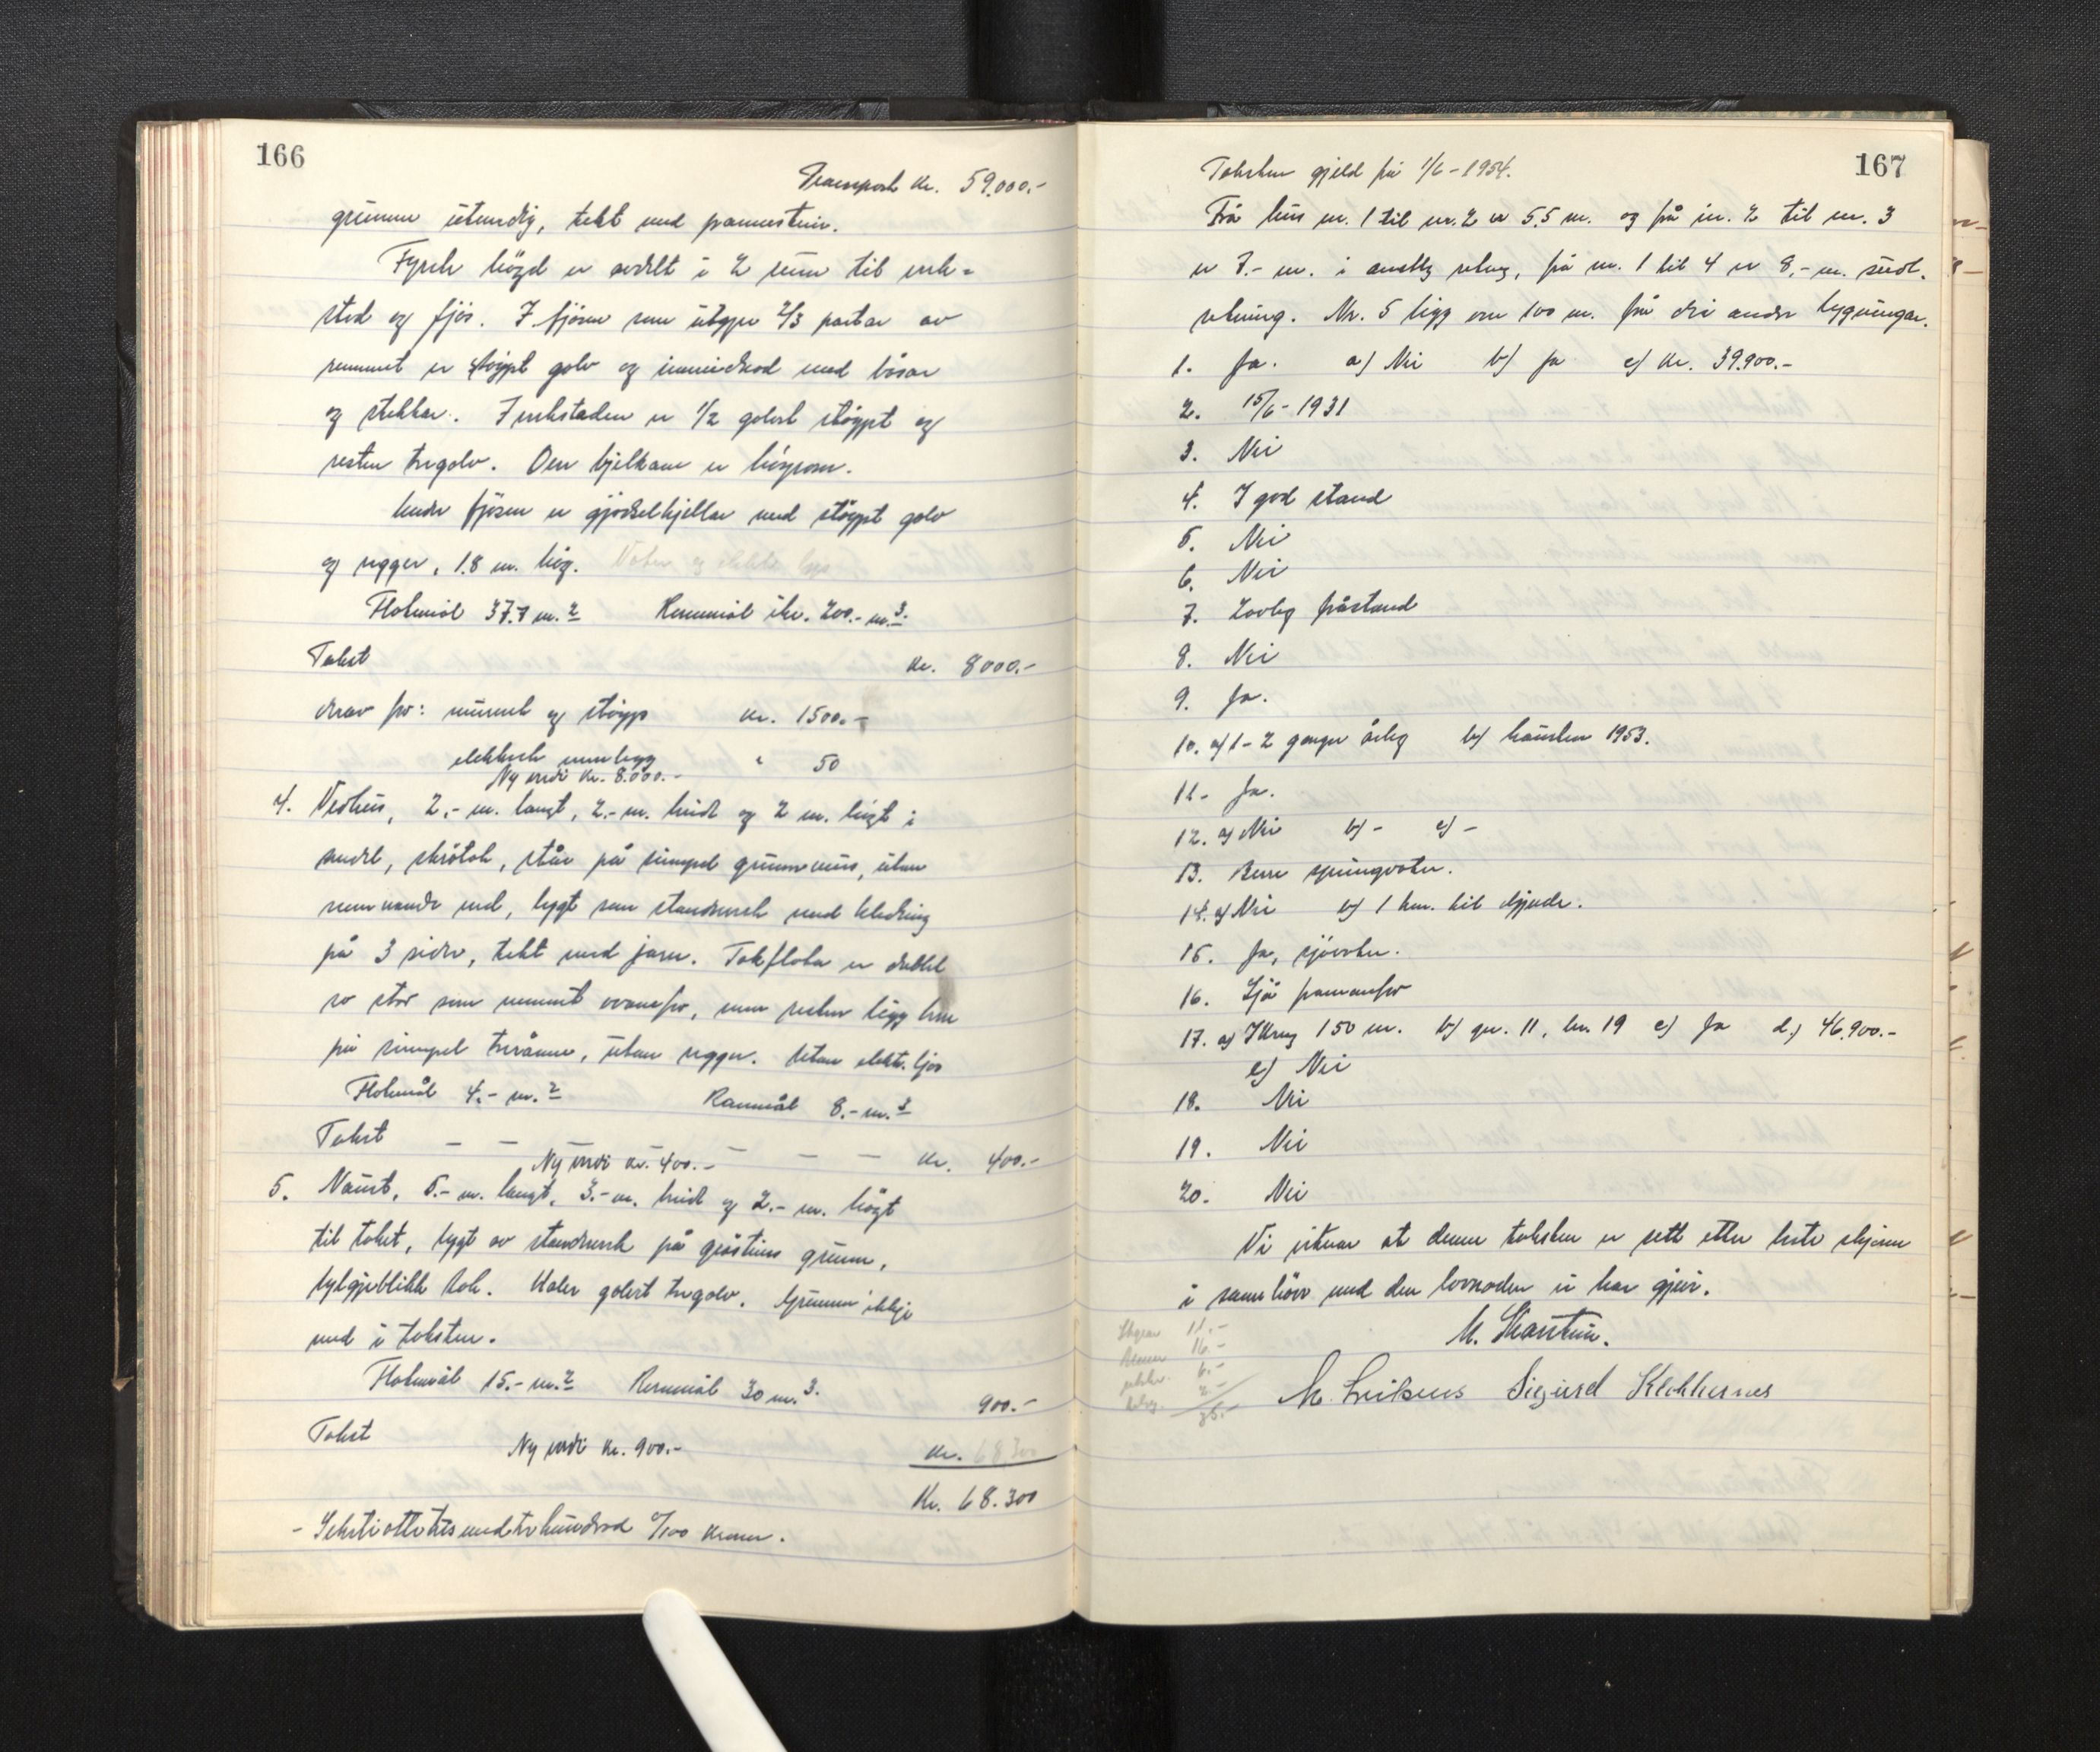 166
Transport kr. 59.000.-
grunnen utvendig, tekt med pannestein.
Fyrste högd er avdelt i 2 rum til verk-
stad og fjös. I fjösen som utgjer 2/3 partar av
rommet er stöypt golv og innreidnad med båsar
og stekkar. I verkstaden er 1/2 golvet stöypt og
resten tregolv. Over bjelkane er höyrom.
Under fjösen er gjödselkjellar med stöypt golv
og vegger, 1.8 m. hög. Vatn og elektr. lys
Flatemål 37.7 m.2 Rommål ikr. 200.- m.3.
Takst kr. 8000.-
derav for: murverk og stöyp kr. 1500.-
elektrisk innlegg " 50
Ny verdi kr. 8.000.-
4. Vedhus, 2.- m. langt, 2.- m. breidt og 2 m. högt i
medel, skråtak, står på simpel grunnmur, utan
med, bygt som standverk med kledning
på 3 sider, tekt med jarn. Takflata er dobbel
so stor som rommet ovanfor, men resten ligg
på simpel treråme, utan vegger. Utan elektr. ljos
Flatemål 4.- m.2 Rommål 8.- m.3
Takst — — — — — — kr. 400.-
Ny verdi kr. 400.-
5. Naust, 5.- m. langt, 3.- m. breidt og 2.- m. högt
til taket, bygt av standverk på gråsteins grunn,
bylgjeblikk tak. Halve golvet tregolv. Grunnen ikkje
med i taksten.
Flatemål 15.- m.2 Rommål 30 m.3.
900.-
Takst Ny verdi kr. 900.- kr. 68300
Kr. 68.300
- Sekstiåttetusundtrehundrad 0/100 kroner.
167
Taksten gjeld frå 1/6-1954.
Frå hus nr. 1 til nr. 2 er 5.5 m. og frå nr. 2 til nr. 3
er 7.- m. i austleg retning, frå nr. 1 til 4 er 8,- m. sudl.
retning. Nr. 5 ligg om 100 m. frå dei andre bygningar.
1. Ja. a) Nei b) Ja c) kr. 39.900.-
2. 15/6-1931
3. Nei
4. I god stand
5. Nei
6. Nei
7. Lovleg fråstand
8. Nei
9. Ja.
10. a) 1-2 gonger årleg b) hausten 1953.
11. Ja.
12. a) Nei b) - c) -
13. Berre springvatn.
14. a) Nei b) 1 km. til
15. Ja, sjövatn.
16. Sjå framanfor
17. a) Ikring 150 m. b) gn. 11, bn. 19 c) Ja d.) 46.900.-
e) Nei
18. Nei
19. Nei
20. Nei
Vi vitnar at denne taksten er sett etter beste skjönn
i samhöve med den lovnaden vi har gjeve.
11.-
16.-
6.-
2.-
35.-
M. Skarstein.
M. Eriksen Sigurd Klokkernes